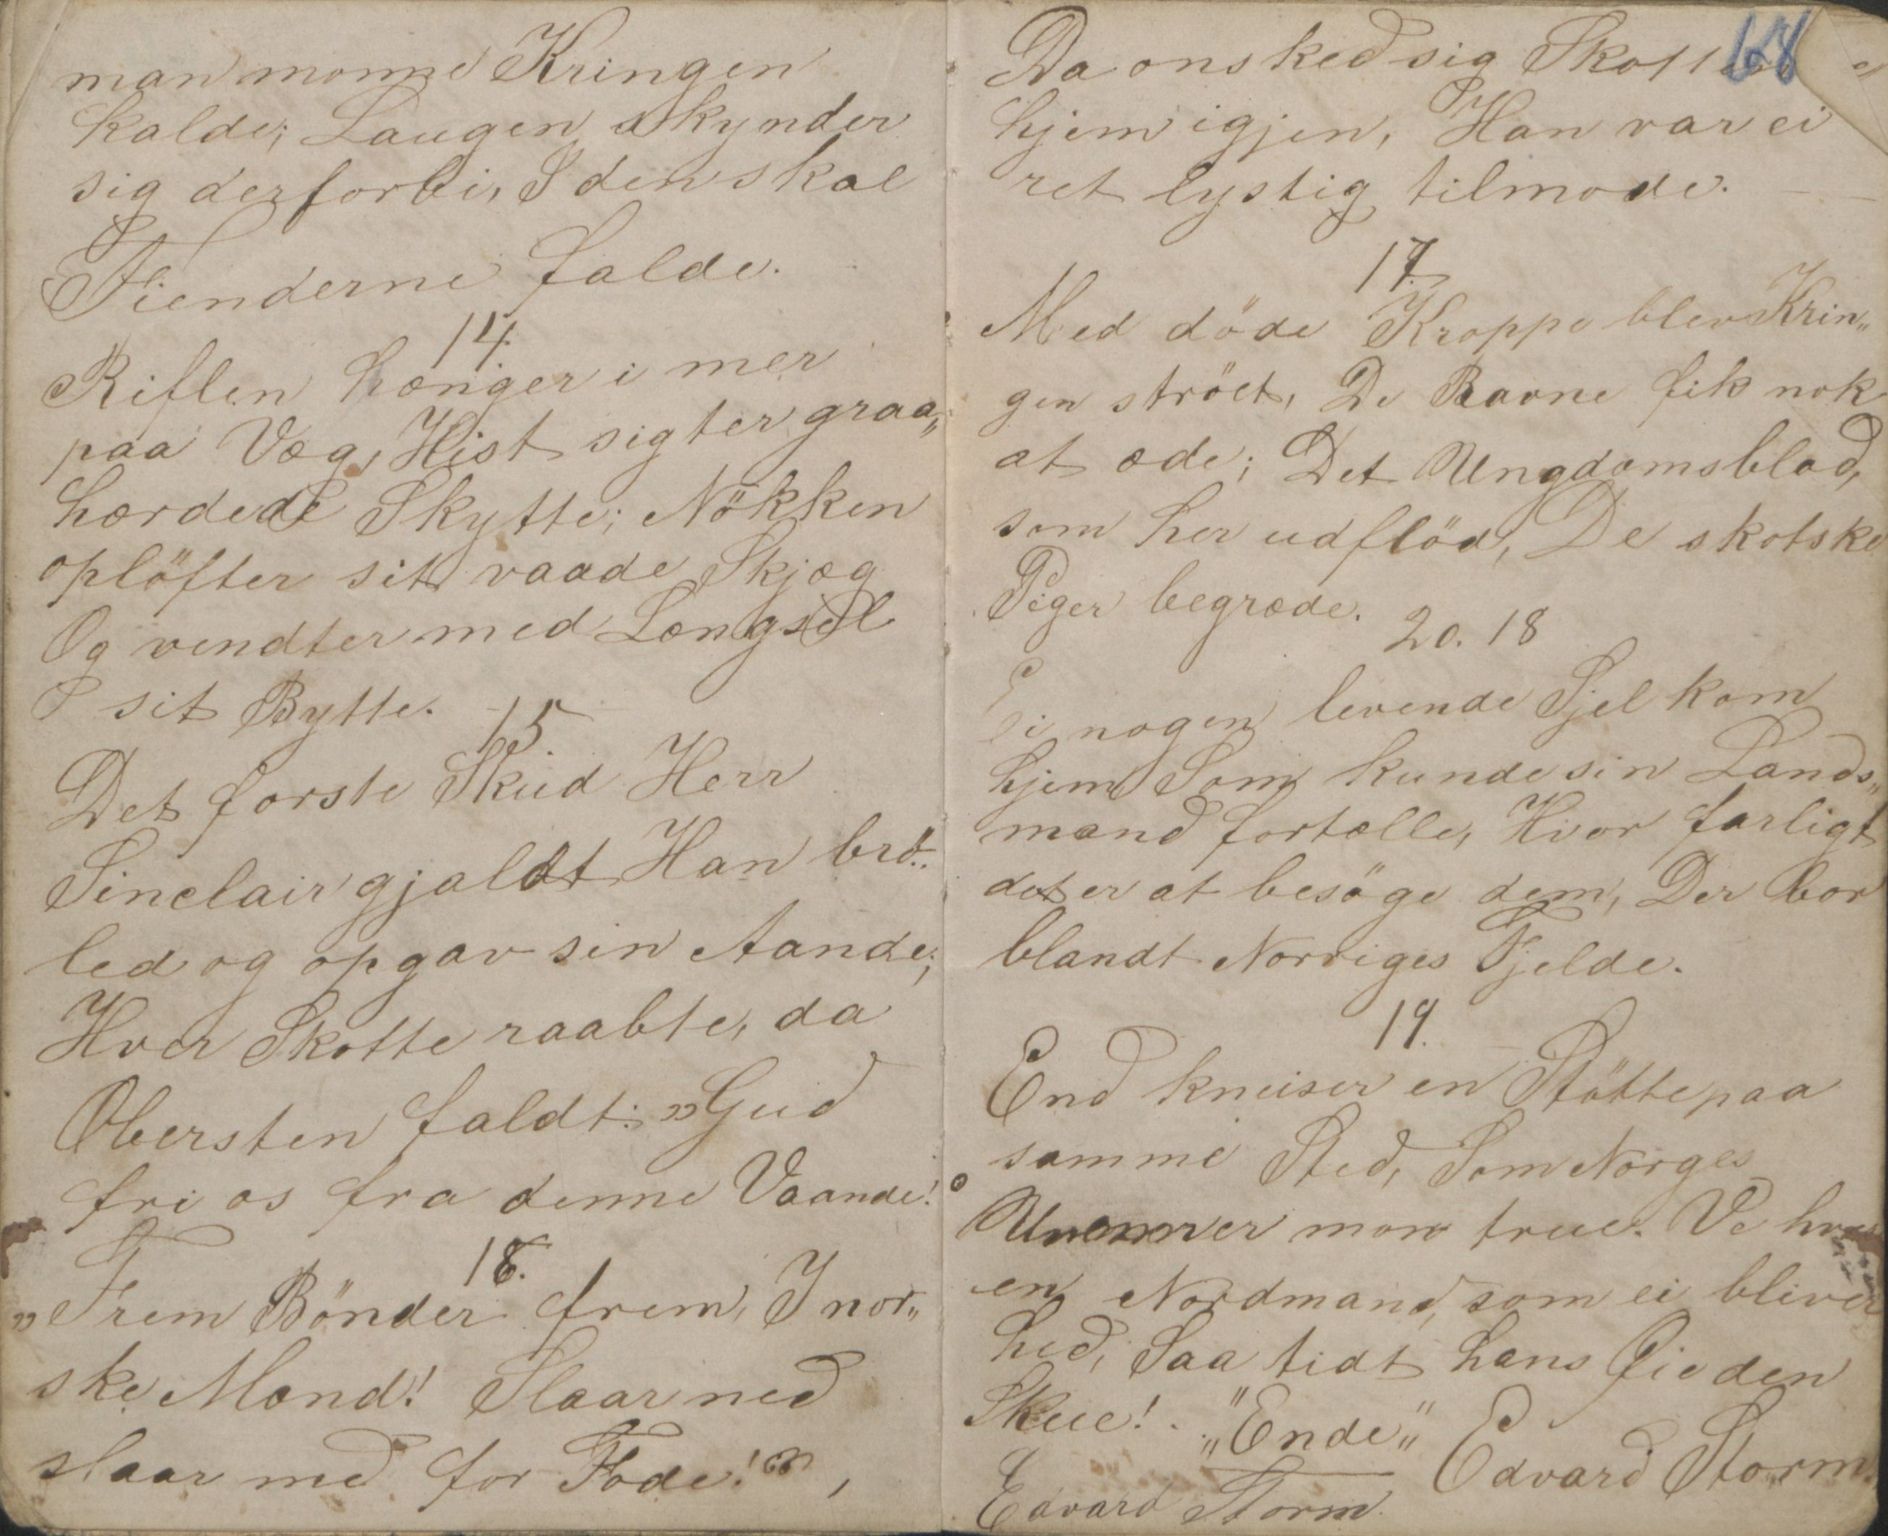 man monne Kringen
kalde; Laugen skynder
sig derforbi, I den skal
Fienderne falde.
14.
Riflen hænger i mer
paa Væg, Hist sigter graa„
hærdede Skytte; Nökken
oplöfter sit vaade Skjæg
Og vendter med Længsel
sit Bytte.
15.
Det forste Skud Herr
Sinclair gjaldt Han brö„
led og opgav sin Aande;
Hver Skotte raabte, da
Obersten faldt: „Gud
fri os fra denne Vaande!
16.
„Frem Bönder frem, I nor„
ske Mænd! Slaar ned
slaar ned for Fode!“,
68
Da onsked sig Skotten
hjem igjen, Han var ei
ret lystig tilmode.
17.
Med döde Kroppe blev Krin„
gen ströet, De Ravne fik nok
at æde; Det Ungdomsblod,
som her udflöd, De skotske
Piger begræde.
20. 18
Ei nogen levende Sjel kom
hjem Som kunde sin Lands„
mand fortælle, Hvor farligt
det er at besöge dem, Der bor
blandt Norriges Fjelde.
19.
End kneiser en Stötte paa
samme Sted, Som Norges
Uvenner mon true. Ve hver
en Nordmand, som ei bliver
hed, Saa tidt hans Øie den
Skue! „Ende„ Edvard Storm.
Edvard Storm.